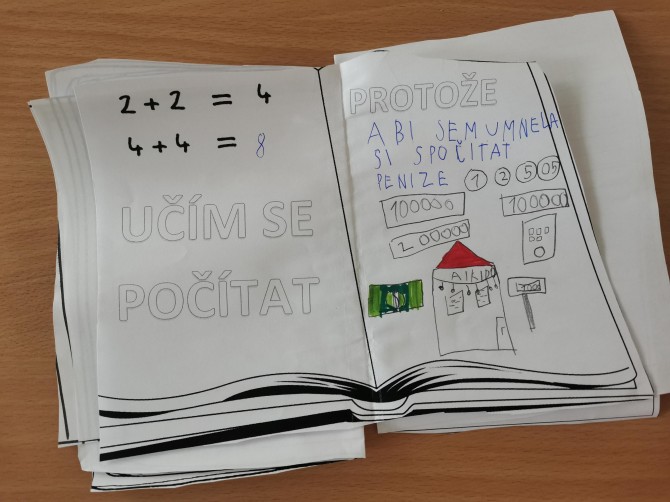 2 + 2 = 4
4 + 4 = 8
UČÍM SE
POČÍTAT
PROTOŽE
A BI SEM UMNELA
SI SPOČITAT
PENIZE 1 2 5 05
100000 10000
200000